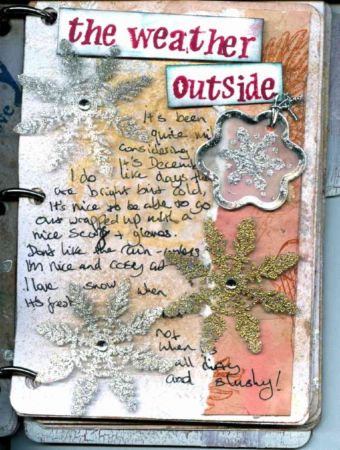 the weather
outside
It's been
quite mild
considering
It's December
I do like days that
are bright but cold,
It's nice to be able to go
out wrapped up with a
nice scarf + gloves.
Don't like the rain - unless
I'm nice and cosy at
I love snow when
its fresh
not
when its
all dirty
and slushy!